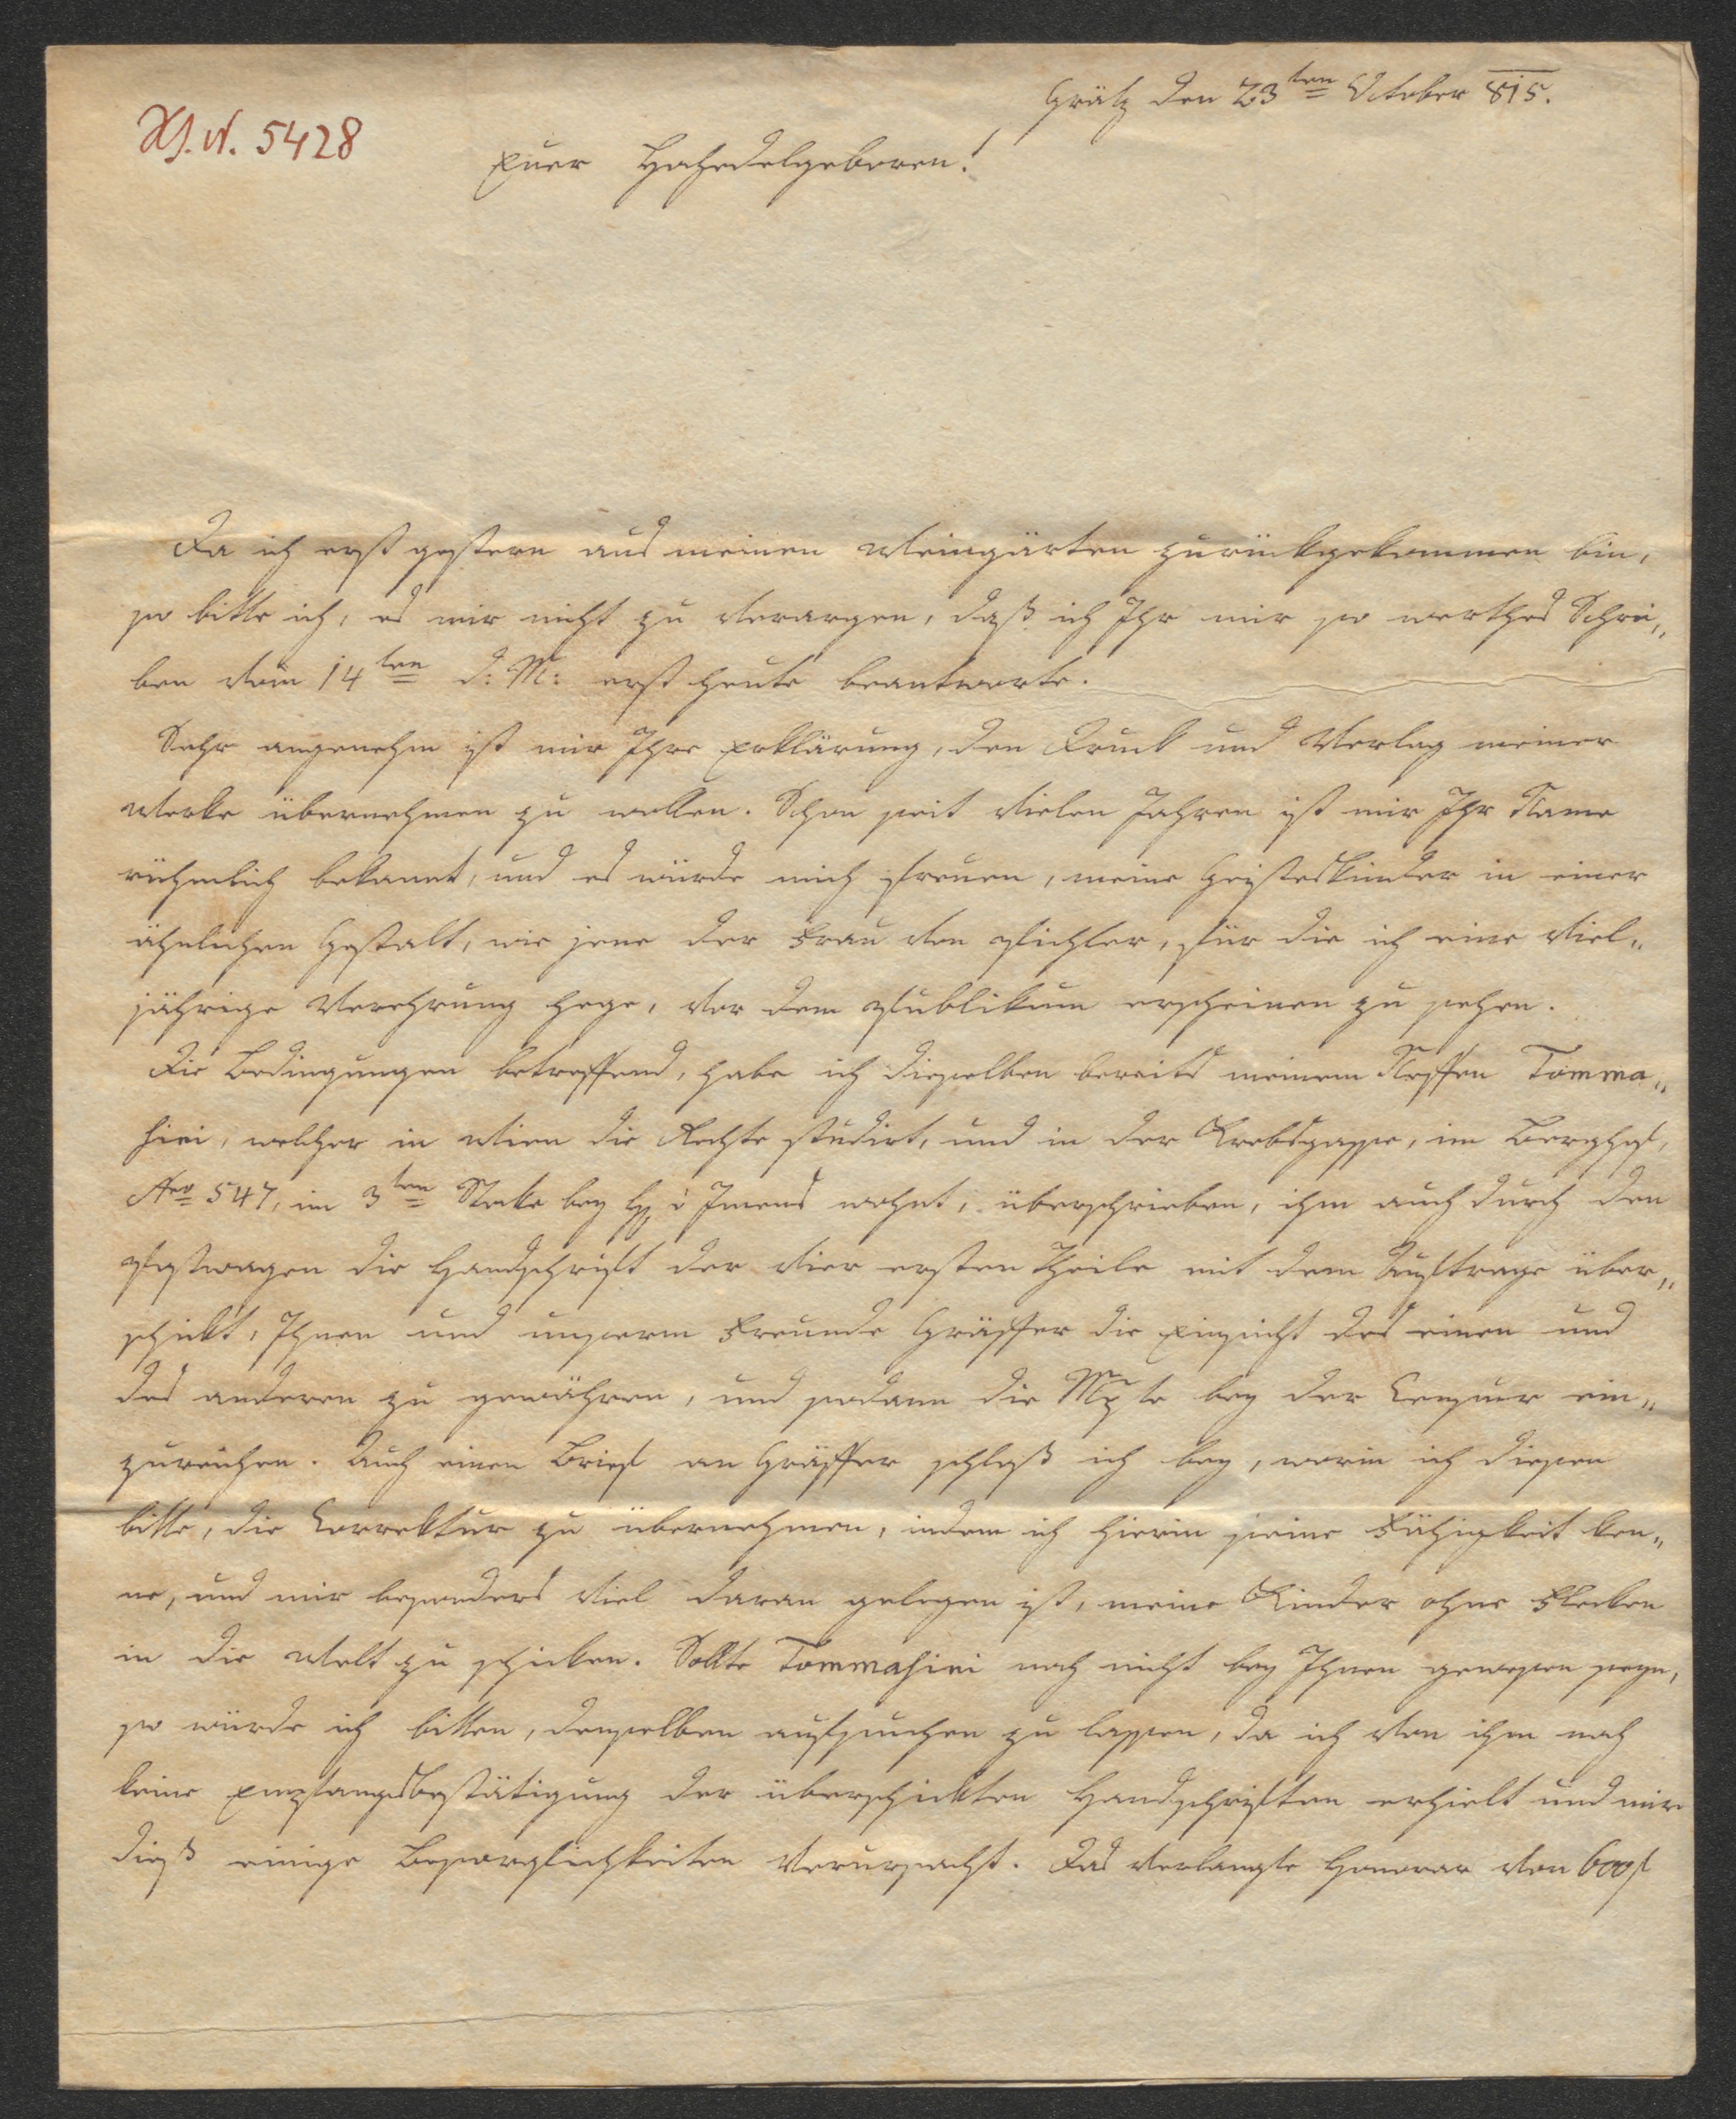 Grätz den 23ten October 815.
H. J. N. 5428
Euer Hochedelgeboren!
Da ich erst gestern aus meinen Weingärten zurückgekommen bin,
so bitte ich, es mir nicht zu verargen, daß ich Ihr mir so werthes Schrei„
ben vom 14ten d: M: erst heute beantworte.
Sehr angenehm ist mir Ihre Erklärung, den Druck und Verlag meiner
Werke übernehmen zu wollen. Schon seit vielen Jahren ist mir Ihr Name
rühmlich bekannt, und es würde mich freuen, meine Geisteskinder in einer
ähnlichen Gestalt, wie jene der Frau von Pichler, für die ich eine viel„
jährige Verehrung hege, vor dem Publikum erscheinen zu sehen.
Die Bedingungen betreffend, habe ich dieselben bereits meinem Neffen Tomma„
sini, welcher in Wien die Rechte studirt, und in der Krebsgasse, im Berghof,
Nro 547, im 3ten Stocke bey wohnt, überschrieben, ihm auch durch den
Postwagen die Handschrift der vier ersten Theile mit dem Auftrage über„
schickt, Ihnen und unserem Freunde Gräffer die Einsicht des einen und
des anderen zu gewähren, und sodann die Mspte bey der Censur ein„
zureichen. Auch einen Brief an Gräffer schloß ich bey, worin ich diesen
bitte, die Correktur zu übernehmen, indem ich hierin seine Fähigkeit ken„
ne, und mir besonders viel daran gelegen ist, meine Kinder ohne Flecken
in die Welt zu schicken. Sollte Tommasini noch nicht bey Ihnen gewesen seyn,
so würde ich bitten, denselben aufsuchen zu lassen, da ich von ihm noch
keine Empfangsbestätigung der überschickten Handschriften erhielt und mir
dieß einige Besorglichkeiten verursacht. Das verlangte Honorar von 600f